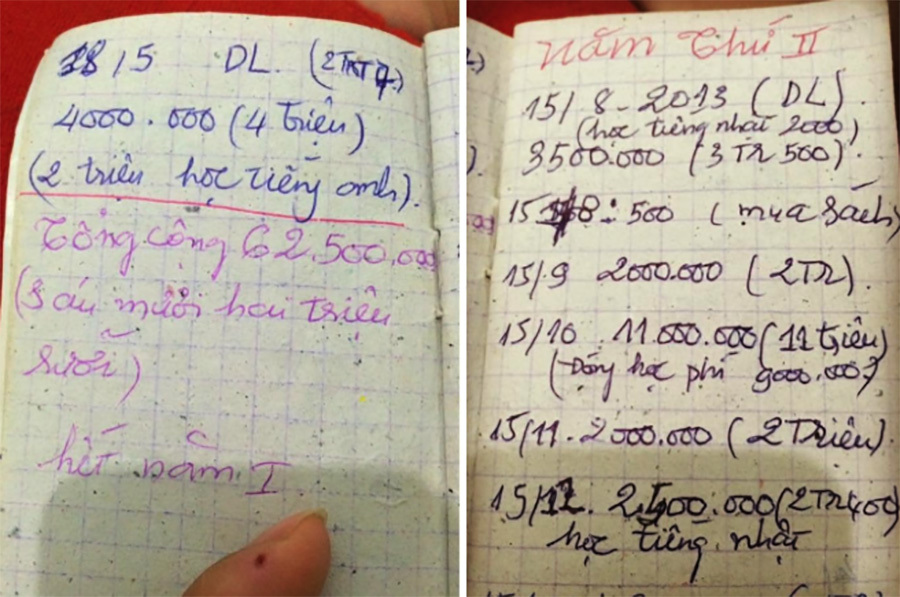 18/5 DL.
4000.000 (4 triệu)
(2 triệu học tiếng anh).
Tổng cộng 62.500.000
(Sáu mươi hai triệu
rưỡi)
hết năm I
Năm thứ II
15/8-2013 (DL).
(học tiếng nhật 2000)
3500.000 (3TR 500).
15 8: 500 (mua sách)
15/9 2000.000 (2TR).
15/10 11.000.000 (11 triệu)
(Đóng học phí 9000.000)
15/11. 2000.000 (2Triệu).
15/12. 2.400.000 (2TR400)
học tiếng nhật